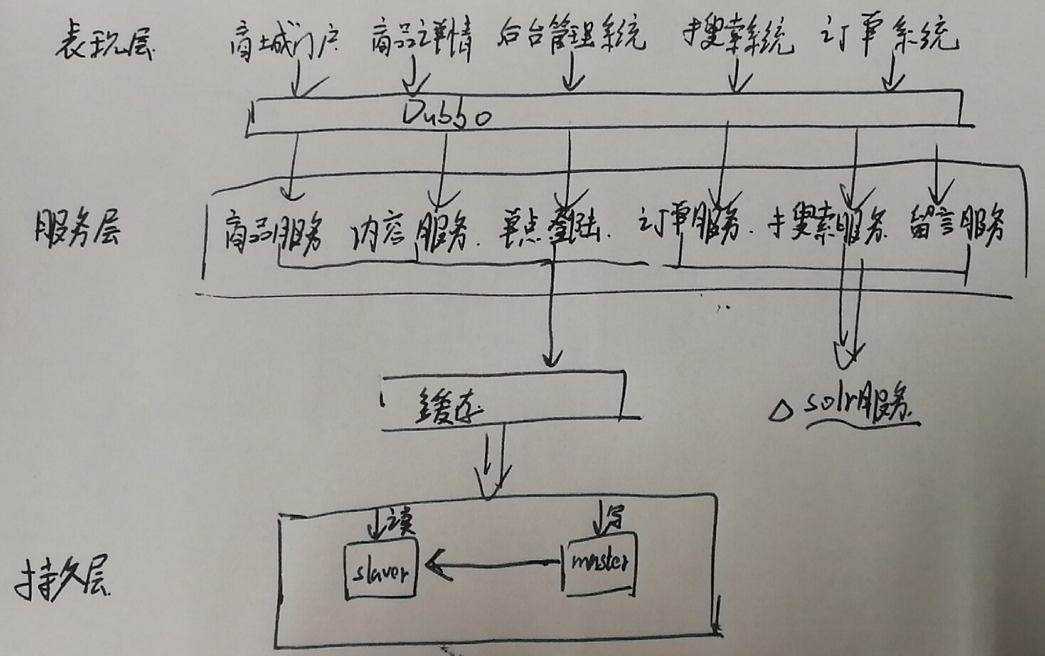 表现层 商城门户 商品详情 后台管理系统 搜索系统 订单系统
Dubbo
服务层 商品服务 内容服务. 单点登陆. 订单服务. 搜索服务. 留言服务
缓存. △ solr服务.
读 写
持久层 slaver master